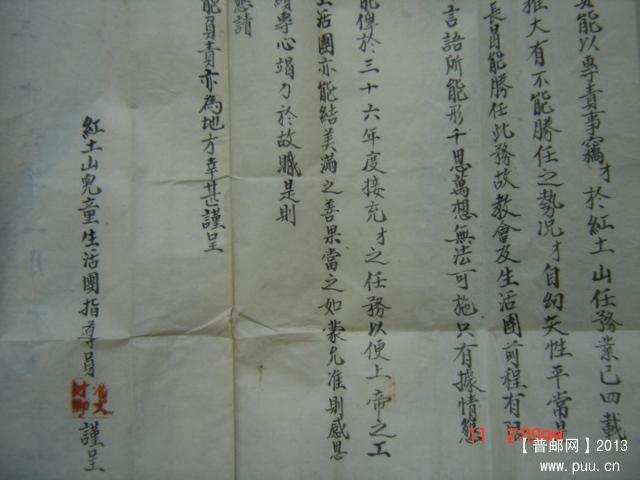 能以專責事竊才於紅土山任務業已四載
推大有不能勝任之勢况才自幼失性平常
長員能勝任此務故教會及生活團前程有
言語所能形千思萬想無法可施只有據情懇
能俾於三十六年度接充才之任務以便上帝之工
生活團亦能結美滿之善果當之如蒙允准則感恩
續專心竭力於故職是則
懇請
能員責亦為地方幸甚謹呈
紅土山兒童生活團指導員 謹呈
11 2:09PM
【普邮网】2013
www.puu.cn